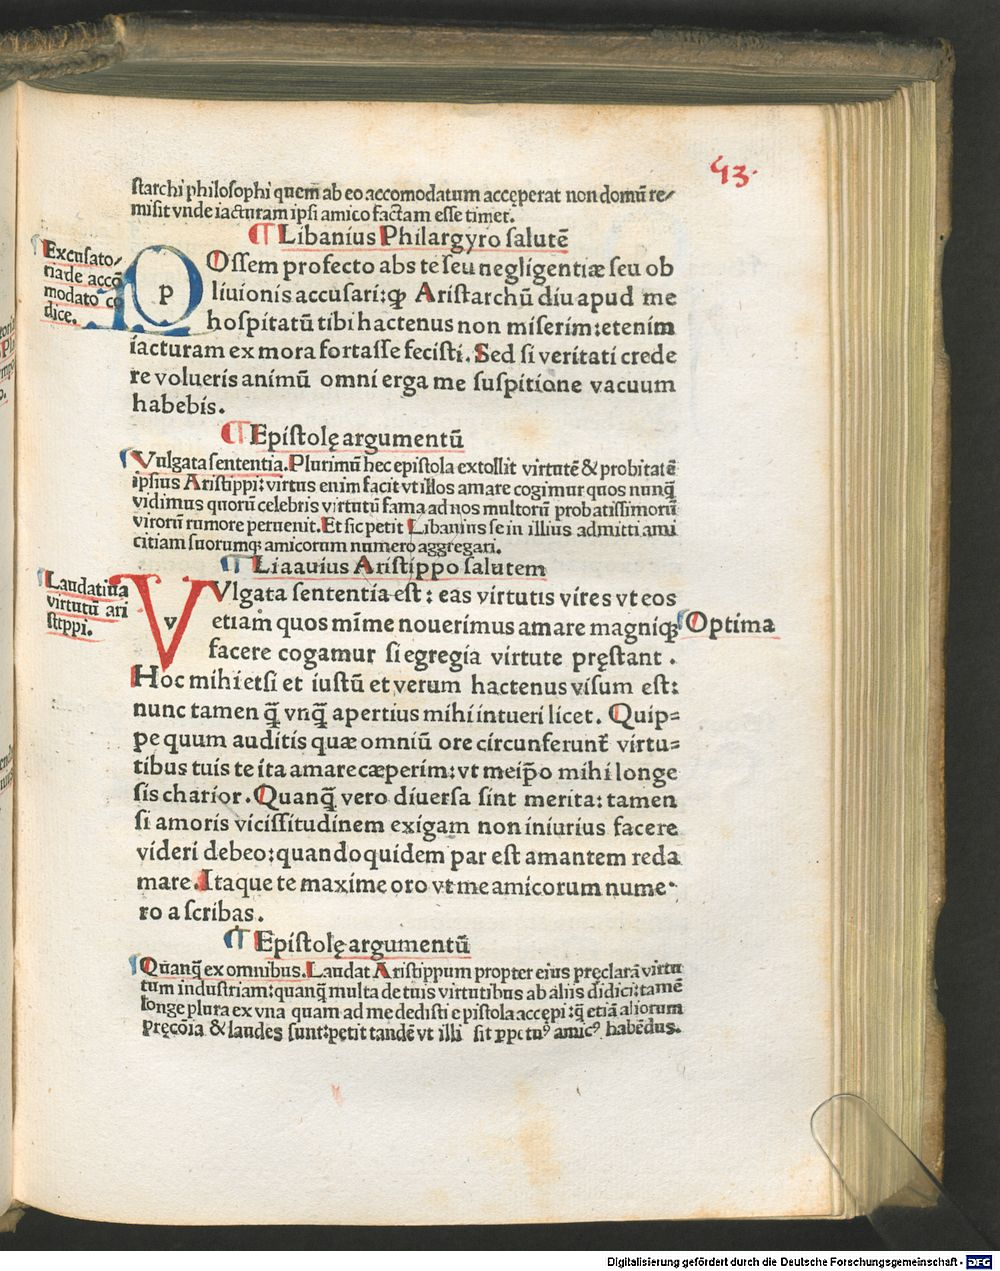 43.
starchi philosophi quem̄ ab eo accomodatum accęperat non domū re⸗
misit vnde iacturam ipsi amico factam esse timet.
¶ Libanius Philargyro salutē
Excusato⸗
ria de accō
modato co
dice.
p
OSsem profecto abs te seu negligentiæ seu ob
liuionis accusari: ꝙ Aristarchū diu apud me
hospitatū tibi hactenus non miserim: etenim
iacturam ex mora fortasse fecisti. Sed si veritati crede
re volueris animū omni erga me suspitione vacuum
habebis.
¶ Epistolę argumentū
Vulgata sententia. Plurimū hec epistola extollit virtutē & probitatē
ipsius Aristippi: virtus enim facit vt illos amare cogimur quos nunq̄
vidimus quorū celebris virtutū fama ad nos multorū probatissimorū
virorū rumore peruenit. Et sic petit Libanius se in illius admitti ami
citiam suorumq; amicorum numero aggregari.
¶ Liaauius Aristippo salutem
Laudatiua
virtutū ari
stippi.
v
VUlgata sententia est: eas virtutis vires vt eos
etiam quos mīme nouerimus amare magniq;
facere cogamur si egregia virtute pręstant.
Optima
Hoc mihi etsi et iustū et verum hactenus visum est:
nunc tamen q̄ vnq̄ apertius mihi intueri licet. Quip⸗
pe quum auditis quæ omniū ore circunferunt̄ virtu⸗
tibus tuis te ita amare cæperim: vt meip̄o mihi longe
sis charior. Quanq̄ vero diuersa sint merita: tamen
si amoris vicissitudinem exigam non iniurius facere
videri debeo: quandoquidem par est amantem reda
mare. Itaque te maxime oro vt me amicorum nume⸗
ro ascribas.
¶ Epistolę argumentū
Quanq̄ ex omnibus. Laudat Aristippum propter eius pręclarā virtu
tum industriam: quanq̄ multa de tuis virtutibus ab aliis didici: tamē
longe plura ex vna quam ad me dedisti epistola accępi: q̄ etiā aliorum
pręcōia & laudes sunt: petit tandē vt illi sit ꝑpetuꝰ amicꝰ habēdus.
Digitalisierung gefördert durch die Deutsche Forschungsgemeinschaft - DFG